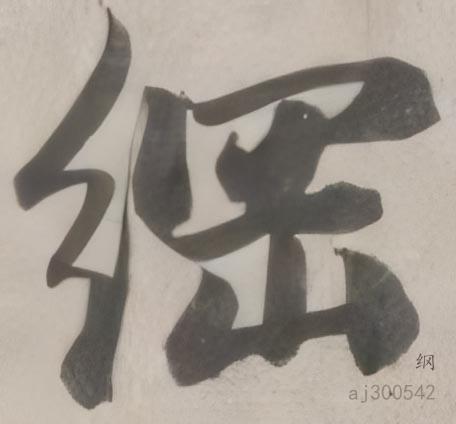 綱
纲
aj300542